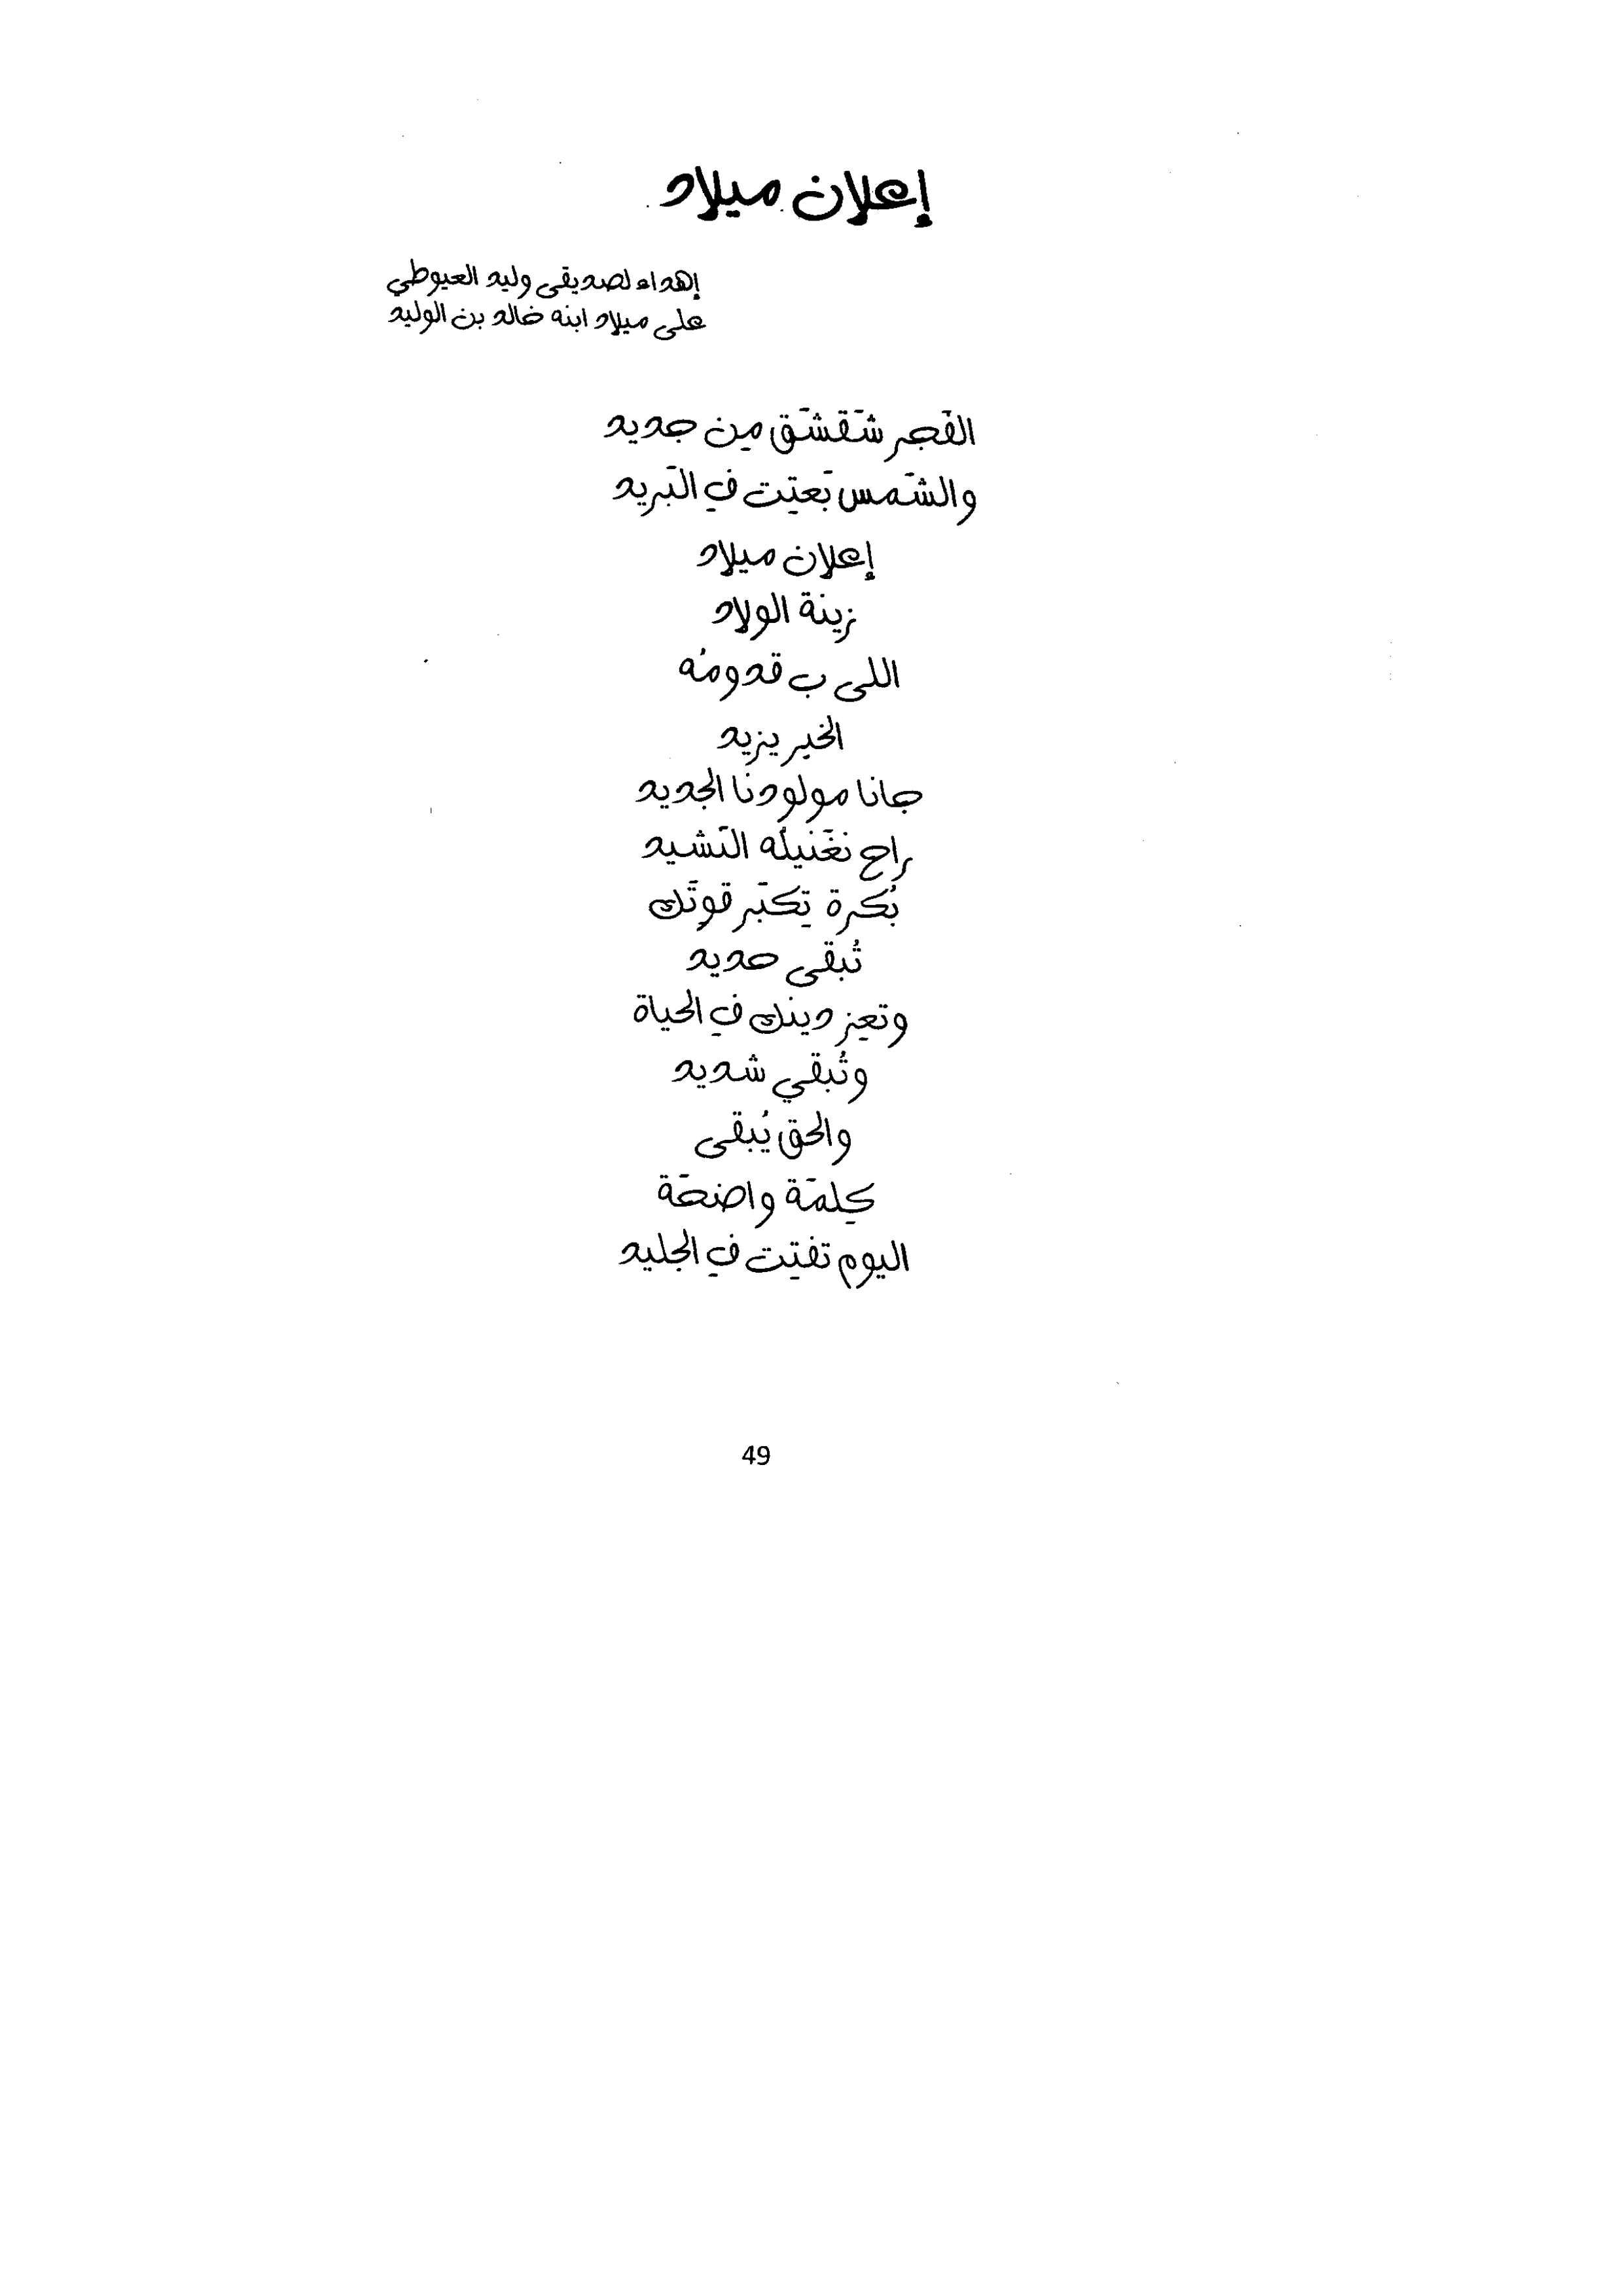 إعلان ميلاد
إهداء لصديقى وليد العيوطي
على ميلاد ابنه خالد بن الوليد
الفَجر شَقشَق مِن جديد
والشَمس بَعتِت فِ البَريد
إعلان ميلاد
زينة الولاد
اللى ب قدومُه
الخير يزيد
جانا مولودنا الجديد
راح نغَنيلُه النَشيد
بُكرة تِكبَر قوتَك
تُبقى حديد
وتعِز دينك فِ الحياة
وتُبقي شديد
والحق يُبقى
كِلمَة واضحَة
اليوم تفتِت فِ الجليد
49